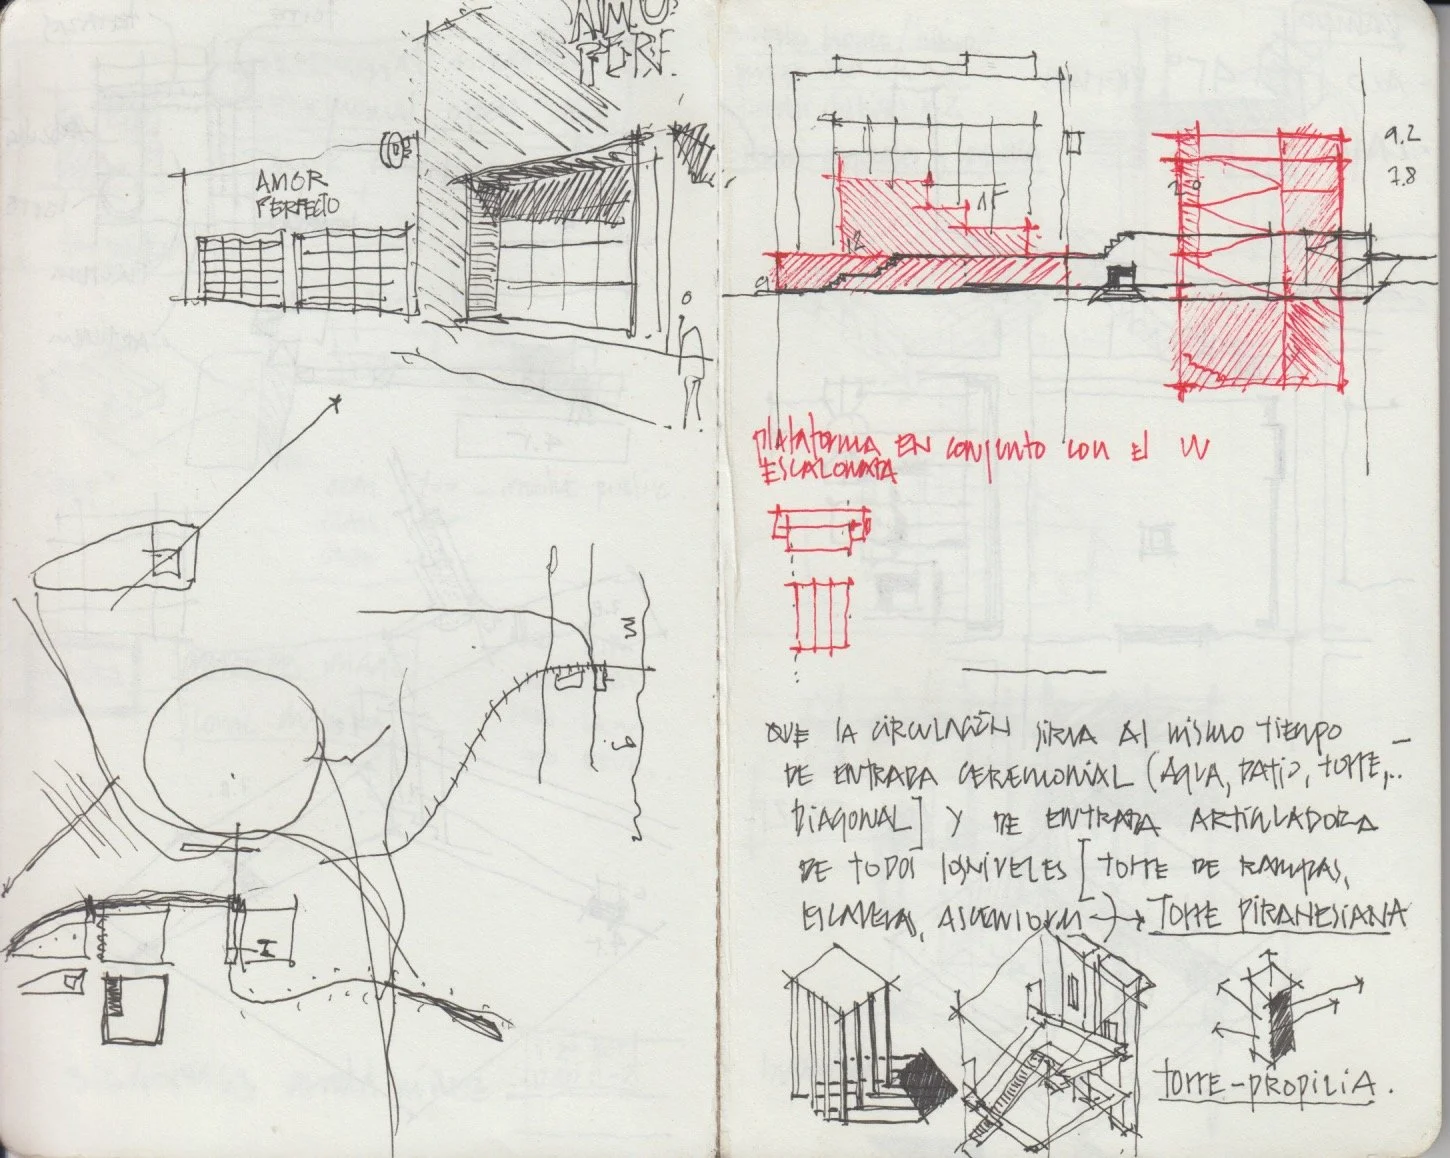 AMO
PERF.
AMOR
PERFECTO
m
g.
9.2
7.8
1F
12
plataforma EN conjunto con el W
ESCALONADA
QUE LA CIRCULACIÓN SIRVA AL MISMO TIEMPO
DE ENTRADA CEREMONIAL (AQUA, PATIO, TORRE,..
DIAGONAL] Y DE ENTRADA ARTICULADORA
DE TODOS LOS NIVELES [TORRE DE RAMPAS,
ESCALERAS, ASCENSORES → TORRE PIRANESIANA
TORRE-PROPILIA.